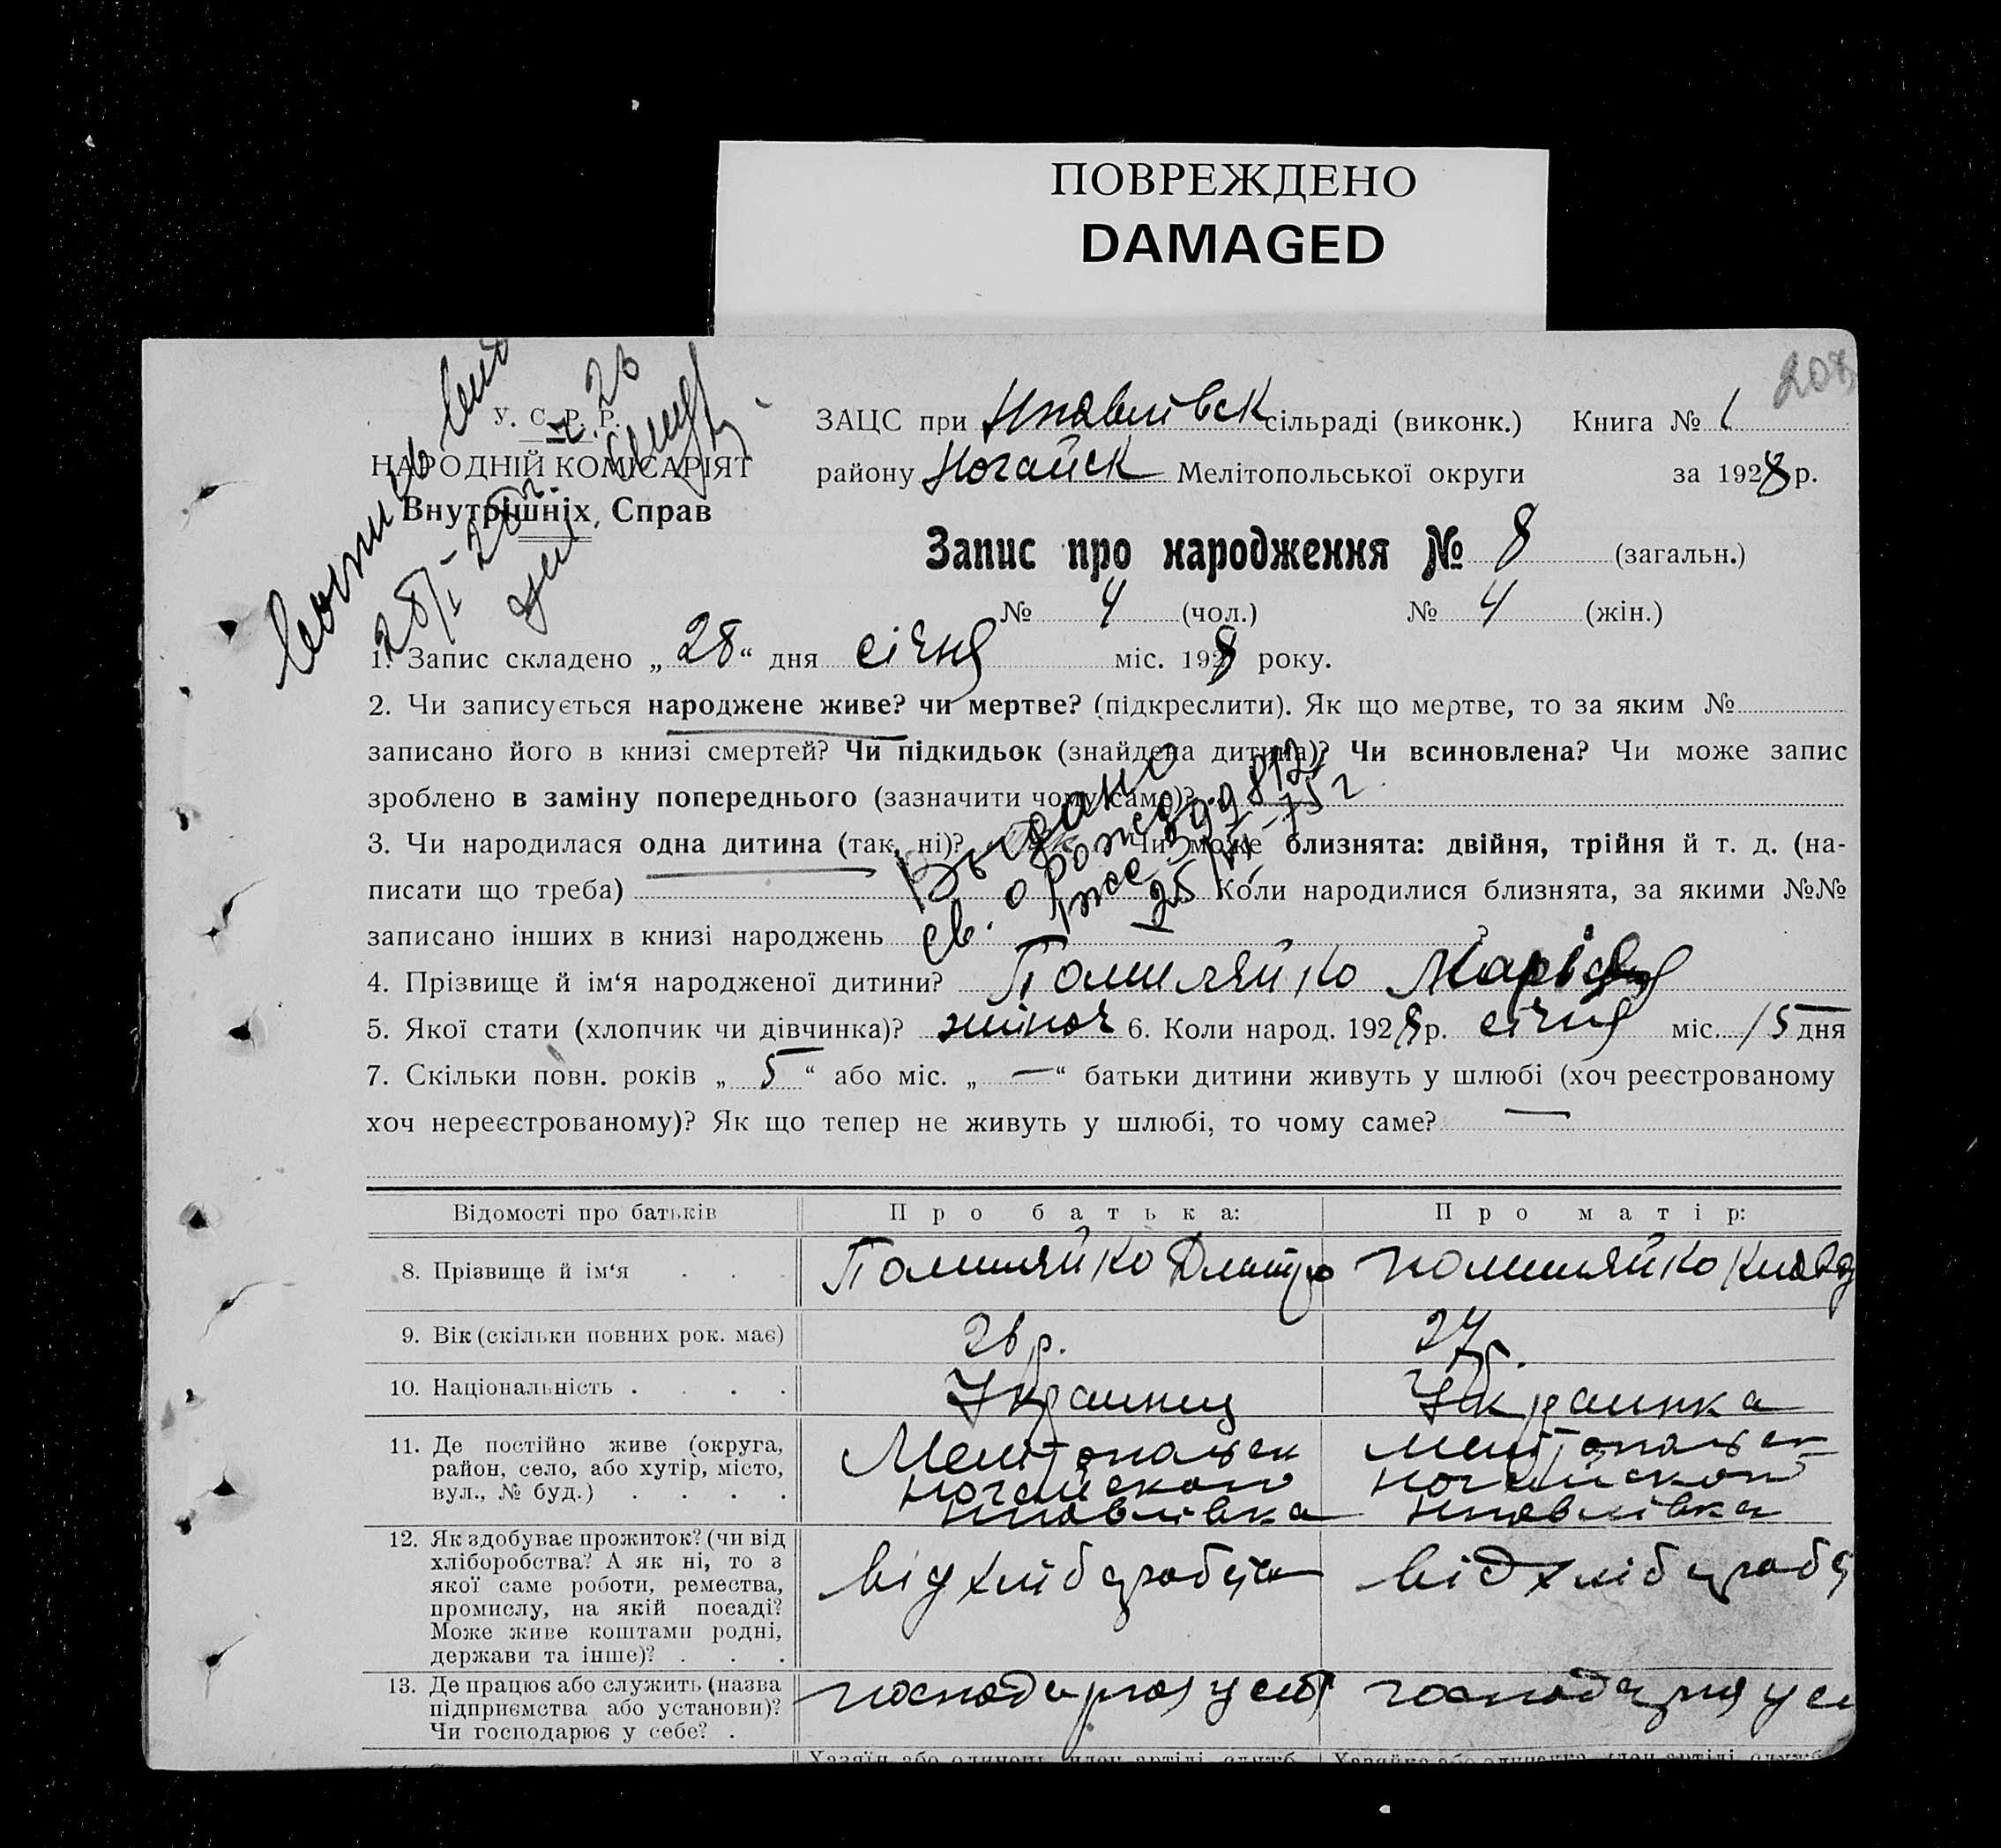 ПОВРЕЖДЕНО
DAMAGED
У. С. Р. Р.
НАРОДНІЙ КОМІСАРІЯТ
Внутрішніх Справ
ЗАЦС при сільраді (виконк.) Книга № 1
району Ногайск Мелітопольської округи за 1928 р.
Запис про народження № 8 (загальн.)
№ 4 (чол.) № 4 (жін.)
1. Запис складено „28“ дня січня міс. 1928 року.
2. Чи записується народжене живе? чи мертве? (підкреслити). Як що мертве, то за яким №
записано його в книзі смертей? Чи підкидьок (знайдена дитина)? Чи всиновлена? Чи може запис
зроблено в заміну попереднього (зазначити чому саме)?
3. Чи народилася одна дитина (так, ні)? Чи може близнята: двійня, трійня й т. д. (на-
писати що треба) Коли народилися близнята, за якими №№
записано інших в книзі народжень
Выдано
св. о рожд
25/VI-75 г
4. Прізвище й ім‘я народженої дитини? Марія
5. Якої стати (хлопчик чи дівчинка)? жіноч 6. Коли народ. 1928 р. січня міс. 15 дня
7. Скільки повн. років „5“ або міс. „—“ батьки дитини живуть у шлюбі (хоч реєстрованому
хоч нереєстрованому)? Як що тепер не живуть у шлюбі, то чому саме? —
Відомості про батьків Про батька: Про матір:
8. Прізвище й ім‘я . . . Дмитро
9. Вік (скільки повних рок. має) 26 р.
10. Національність . . . . Украинец Украинка
11. Де постійно живе (округа,
район, село, або хутір, місто,
вул., № буд.) . . . .
Мелітопольск Мелітопольск
Ногайского Ногайского
12. Як здобуває прожиток? (чи від
хліборобства? А як ні, то з
якої саме роботи, ремества,
промислу, на якій посаді?
Може живе коштами родні,
держави та інше)? . . .
від від
13. Де працює або служить (назва
підприємства або установи)?
Чи господарює у себе? .